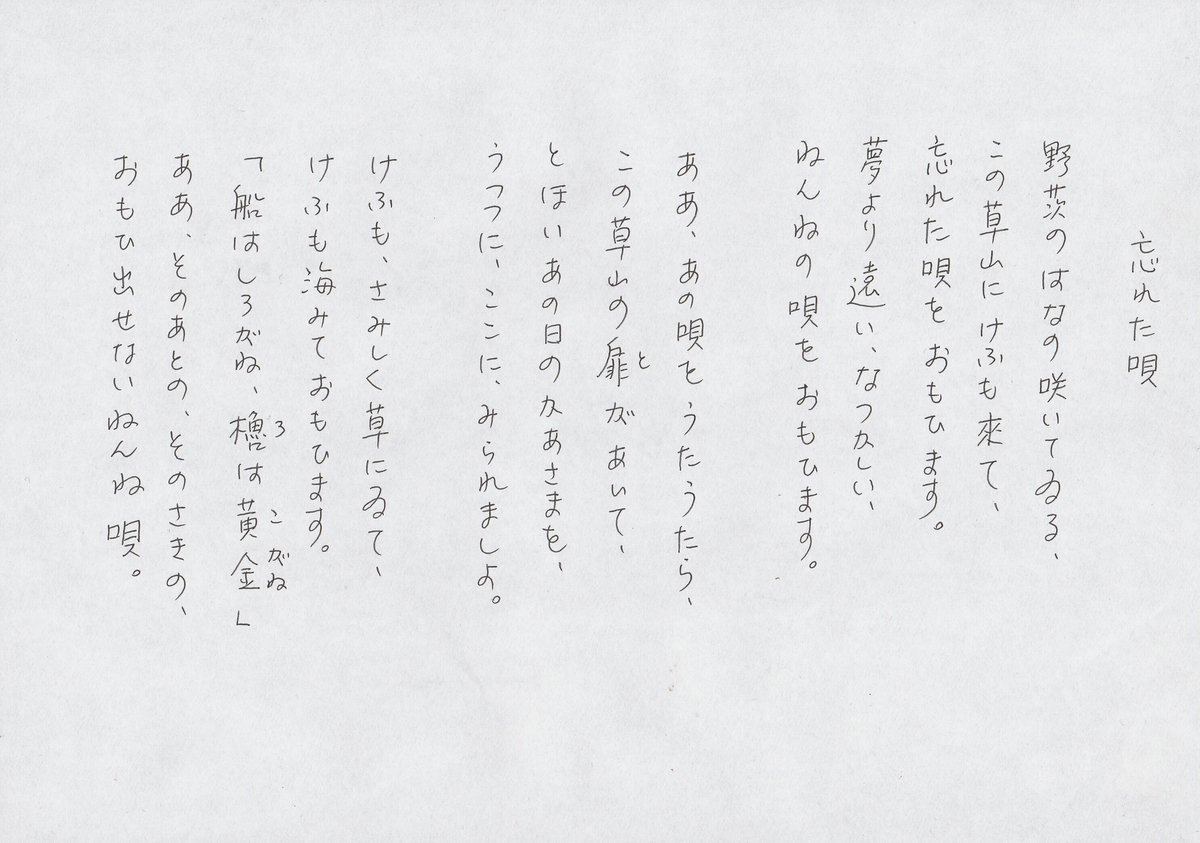 忘れた唄
野茨のはなの咲いてゐる、
この草山にけふも來て、
忘れた唄をおもひます。
夢より遠い、なつかしい、
ねんねの唄をおもひます。
ああ、あの唄をうたうたら、
この草山の扉があいて、
と
とほいあの日のかあさまを、
うつつに、ここに、みられましよ。
けふも、さみしく草にゐて、
けふも海みておもひます。
「船はしろがね、櫓は黄金」
ろ
こがね
ああ、そのあとの、そのさきの、
おもひ出せないねんね唄。